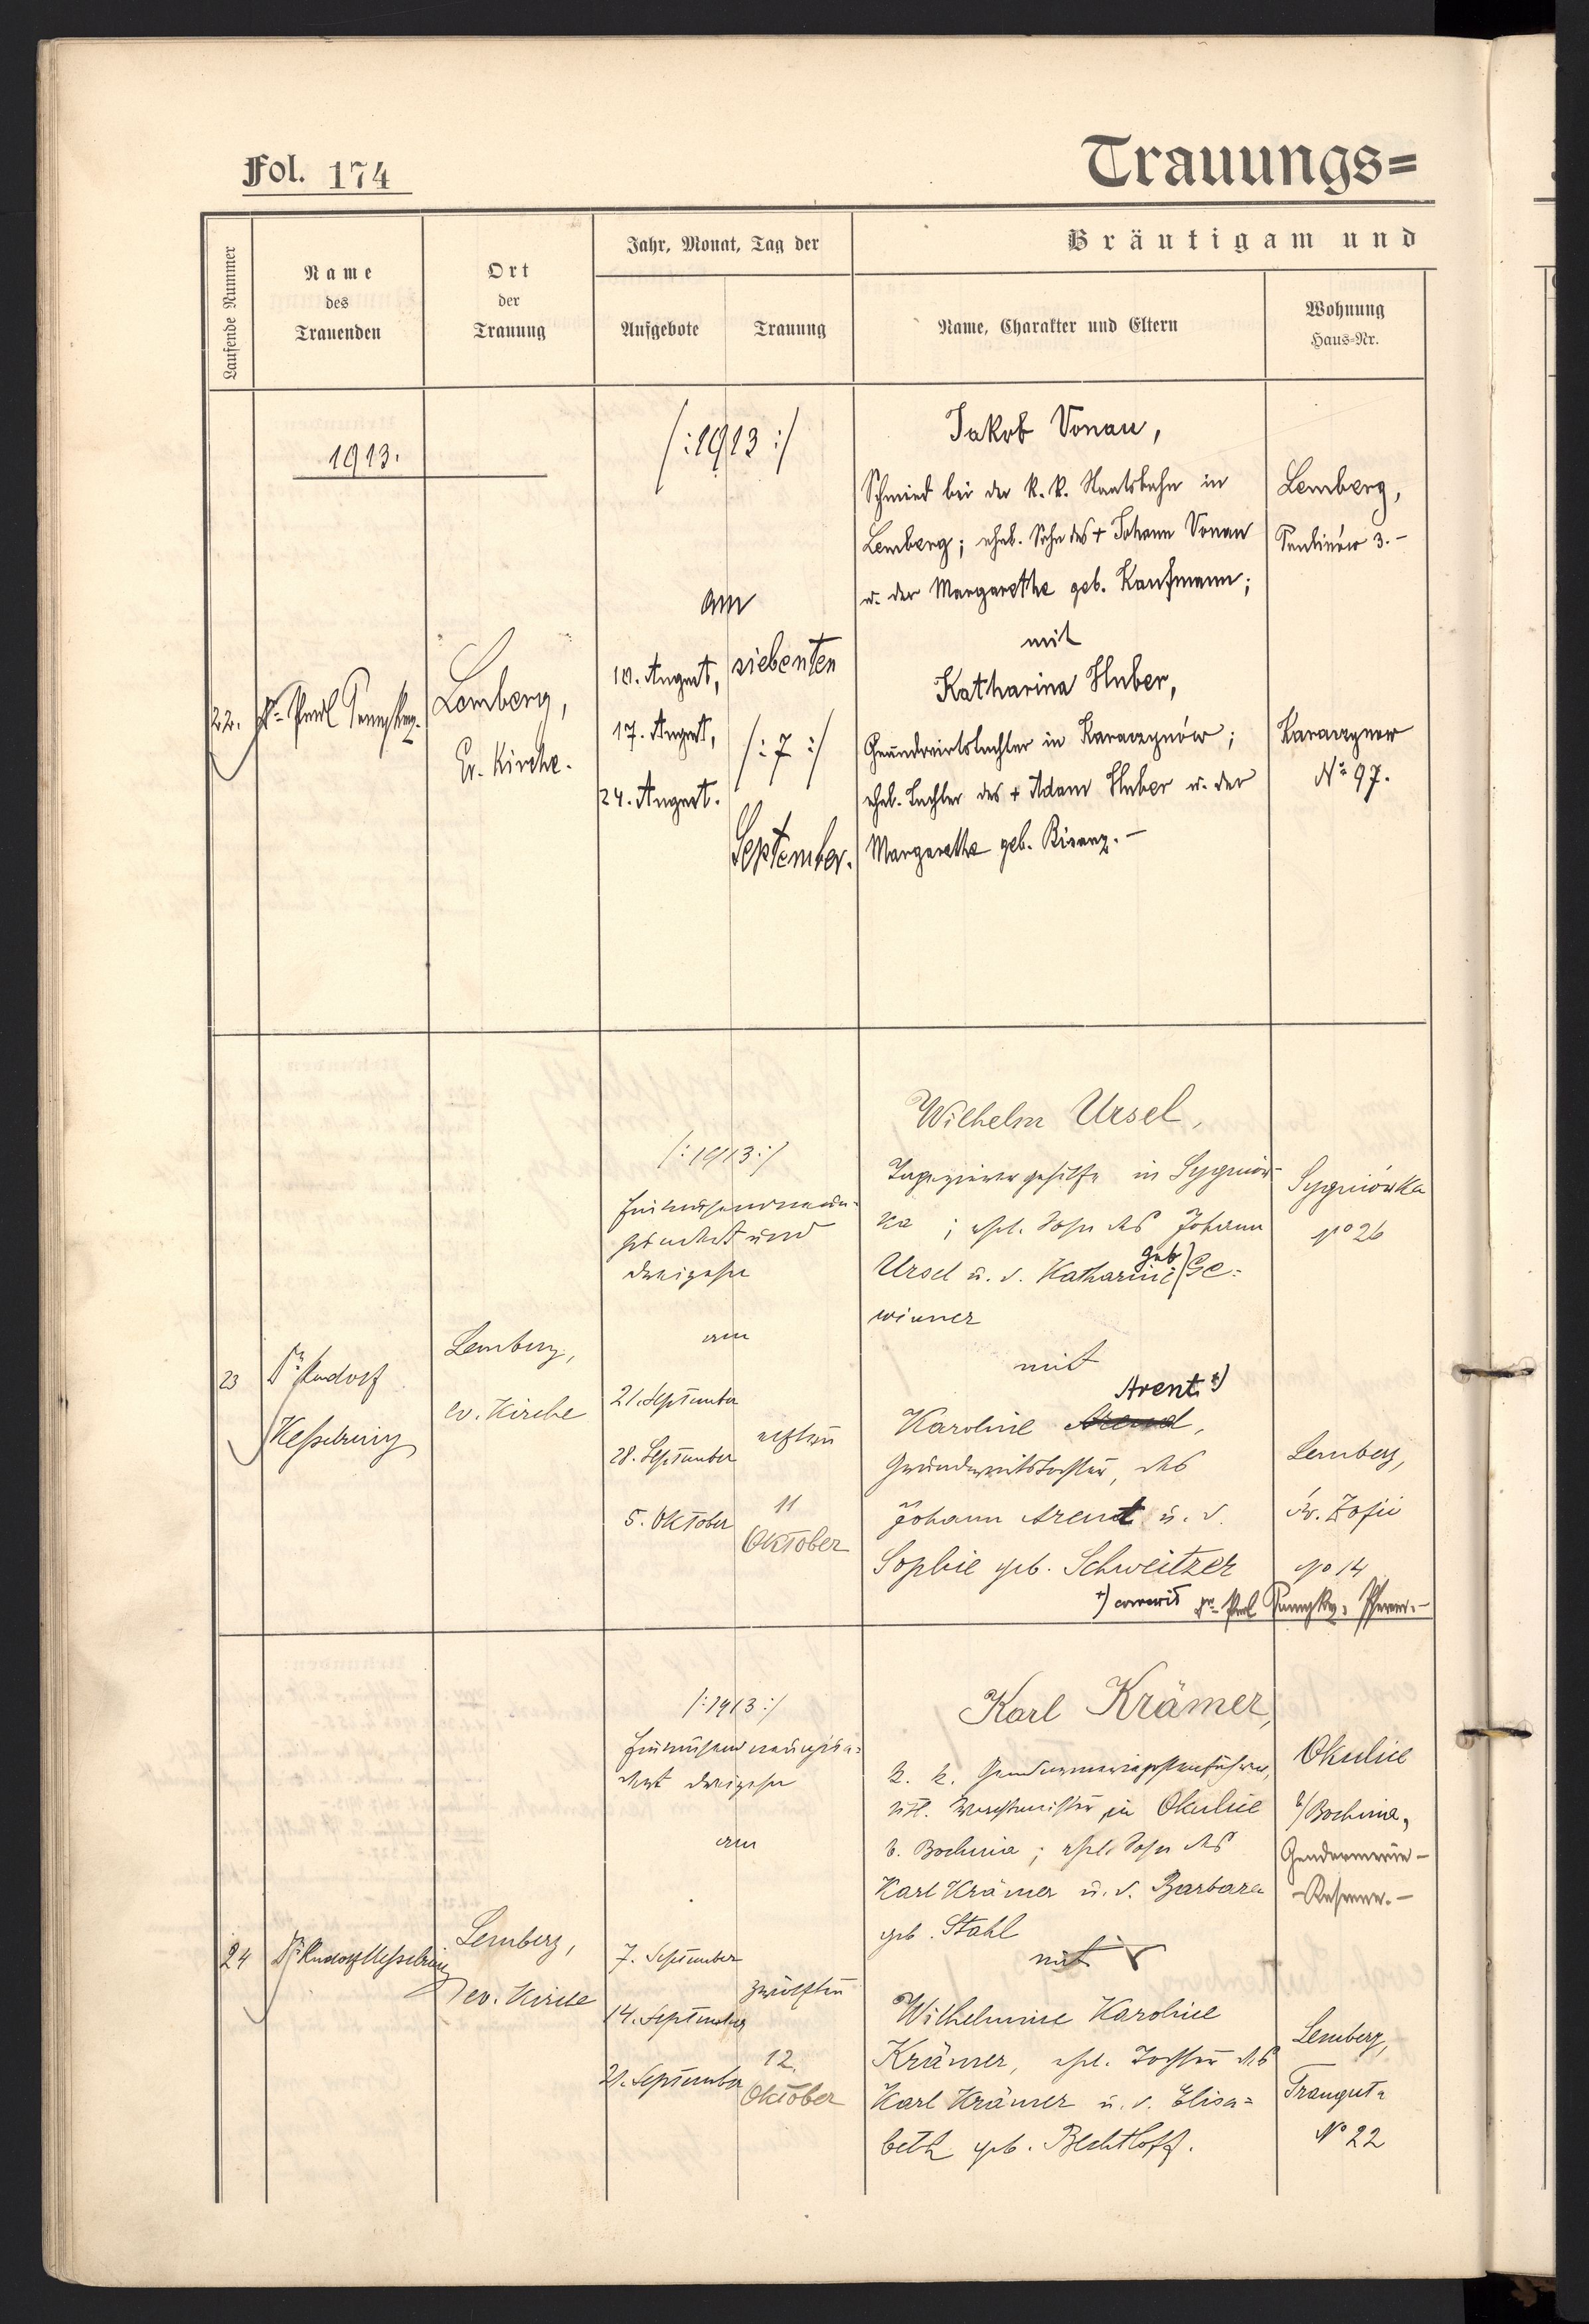 Fol. 174
Trauungs=
Laufende Nummer
Name
des
Trauenden
Ort
der
Trauung
Jahr, Monat, Tag der
Aufgebote
Trauung
Bräutigam und
Name, Charakter und Eltern
Wohnung
Haus-Nr.
1913.
/:1913:/
Jakob Vonau,
Schmied bei der k. k. Staatsbahn in
Lemberg; ehel. Sohn des + Johann Vonau
u. der Margarethe geb. Kaufmann;
mit
Katharina Huber,
Grundwirtstochter in Karaczynów;
ehel. Tochter des + Adam Huber u. der
Margarethe geb. Bisanz.-
Lemberg,
3.-
Karaczynow
No 97.
22.
Dr. Paul
Lemberg,
Ev. Kirche.
am
10. August,
17. August,
24. August.
siebenten
/:7:/
September.
/:1913:/
Eintausendneun=
hundert und
dreizehn
am
Wilhelm Ursel,
Tapezierergehilfe in Sygniow=
ka; ehel. Sohn des Johann
Ursel u. d. Katharine geb) Ge=
winner
mit
Arent +)
Karoline Arend,
Grundwirtstochter, des
Johann Arent u. d.
Sophie geb. Schweitzer
+) correxit Dr. Paul Pfarrer.-
Sygniówka
No 26
Lemberg,
św. Zofii
No 14
23
Dr. Rudolf
Kesselring
Lemberg,
ev. Kirche
21. September
28. September
5. Oktober
elften
11
Oktober
/:1913:/
Eintausendneunhun=
dert dreizehn
am
Karl Krämer,
k. k. Gendarmeriepostenführer,
tit. Wachtmeister in Okulice
b. Bochnia; ehel. Sohn des
Karl Krämer u. d. Barbara
geb. Stahl
mit
Wilhelmine Karoline
Krämer, ehel. Tochter des
Karl Krämer u. d. Elisa=
beth geb. Bechtloff.
Okulice
b/Bochnia,
Gendarmerie-
-Kaserne.-
Lemberg,
Trauguta
No 22
24
Dr. Rudolf Kesselring
Lemberg,
ev. Kirche
7. September
14. September
21. September
zwölften
12.
Oktober